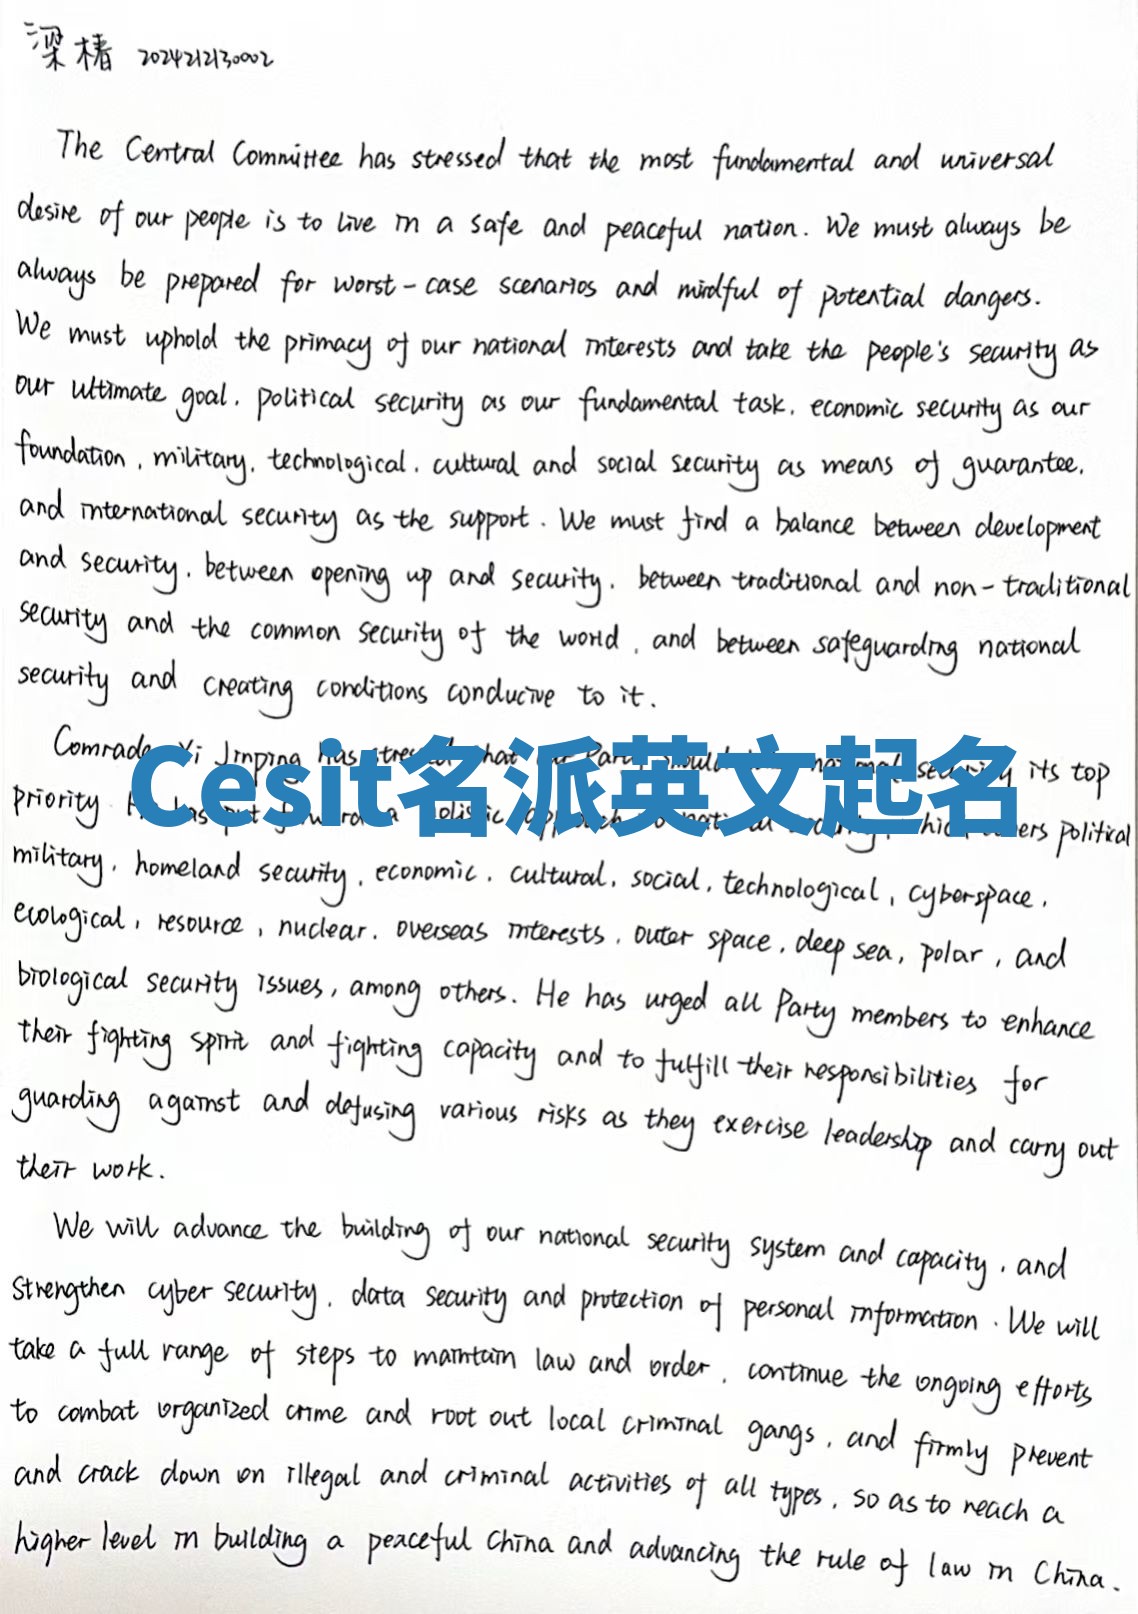 梁椿 2024212130002
The Central Committee has stressed that the most fundamental and universal
desire of our people is to live in a safe and peaceful nation. We must always be
always be prepared for worst-case scenarios and mindful of potential dangers.
We must uphold the primacy of our national interests and take the people's security as
our ultimate goal, political security as our fundamental task, economic security as our
foundation, military, technological, cultural and social security as means of guarantee,
and international security as the support. We must find a balance between development
and security, between opening up and security, between traditional and non-traditional
security and the common security of the world, and between safeguarding national
security and creating conditions conducive to it.
Comrade Xi Jinping has stressed that our Party should national security its top
Cesit名派英文起名
priority. He has put forward a holistic approach to national security, which covers political
military, homeland security, economic, cultural, social, technological, cyberspace,
ecological, resource, nuclear, overseas interests, outer space, deep sea, polar, and
biological security issues, among others. He has urged all Party members to enhance
their fighting spirit and fighting capacity and to fulfill their responsibilities for
guarding against and defusing various risks as they exercise leadership and carry out
their work.
We will advance the building of our national security system and capacity, and
strengthen cyber security, data security and protection of personal information. We will
take a full range of steps to maintain law and order, continue the ongoing efforts
to combat organized crime and root out local criminal gangs, and firmly prevent
and crack down on illegal and criminal activities of all types, so as to reach a
higher level in building a peaceful China and advancing the rule of law in China.